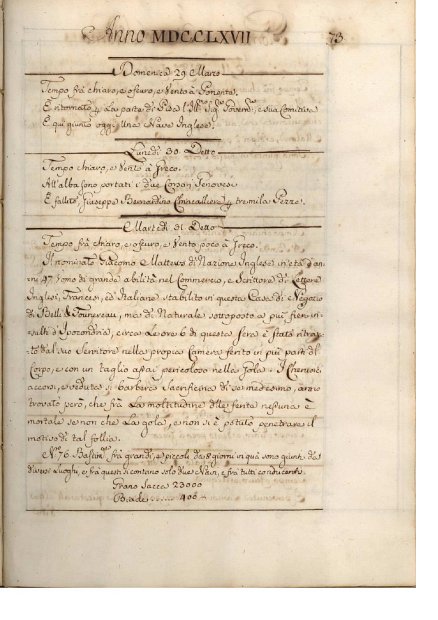 Anno MDCCLXVII
73
Domenica 29 Marzo
Tempo frà chiaro, e oscuro, e Vento à Ponente.
È ritornato dalla parte di Pisa l'Ill.mo Sig.r Govern.e, e sua Comitiva
È qui giunto oggi una Nave Inglese.
Lunedì 30 Detto
Tempo chiaro, e Vento à Greco.
All'alba sono portati i due Corsari Genovesi
È fallito Giuseppe Bernardino Chincagliere tremila Pezze.
Martedì 31 Detto
Tempo frà chiaro, e oscuro, e Vento poco à Greco.
Il nominato Giacomo Matteus di Nazione Inglese in età d'an-
ni 47 Uomo di grande abilità nel Commercio, e Scrittore di Lettere
Inglesi, Francesi, ed Italiane stabilito in questa Casa di Negozio
di & , mà di Naturale sottoposto a più fieri in-
sulti d'Ipocondria, circa Le ore 6 di questa sera è stato ritrova-
to dal suo Servitore nella propria Camera ferito in più parti del
Corpo, e con un taglio assai pericoloso nella Gola. I Cerusici
accorsi, e veduta sì barbera Sacrificina di se medesimo, anno
trovato però, che frà La moltitudine delle ferite nessuna è
mortale se non che La gola, e non si è potuto penetrare il
motivo di tal follia.
N.o 76 Bastim.ti frà grandi, e piccoli da 8 giorni in quà sono giunti da
diversi Luoghi, e frà questi si contano solo due Navi, e frà tutti conducenti
Grano Sacca 23000
Biade ...... 400